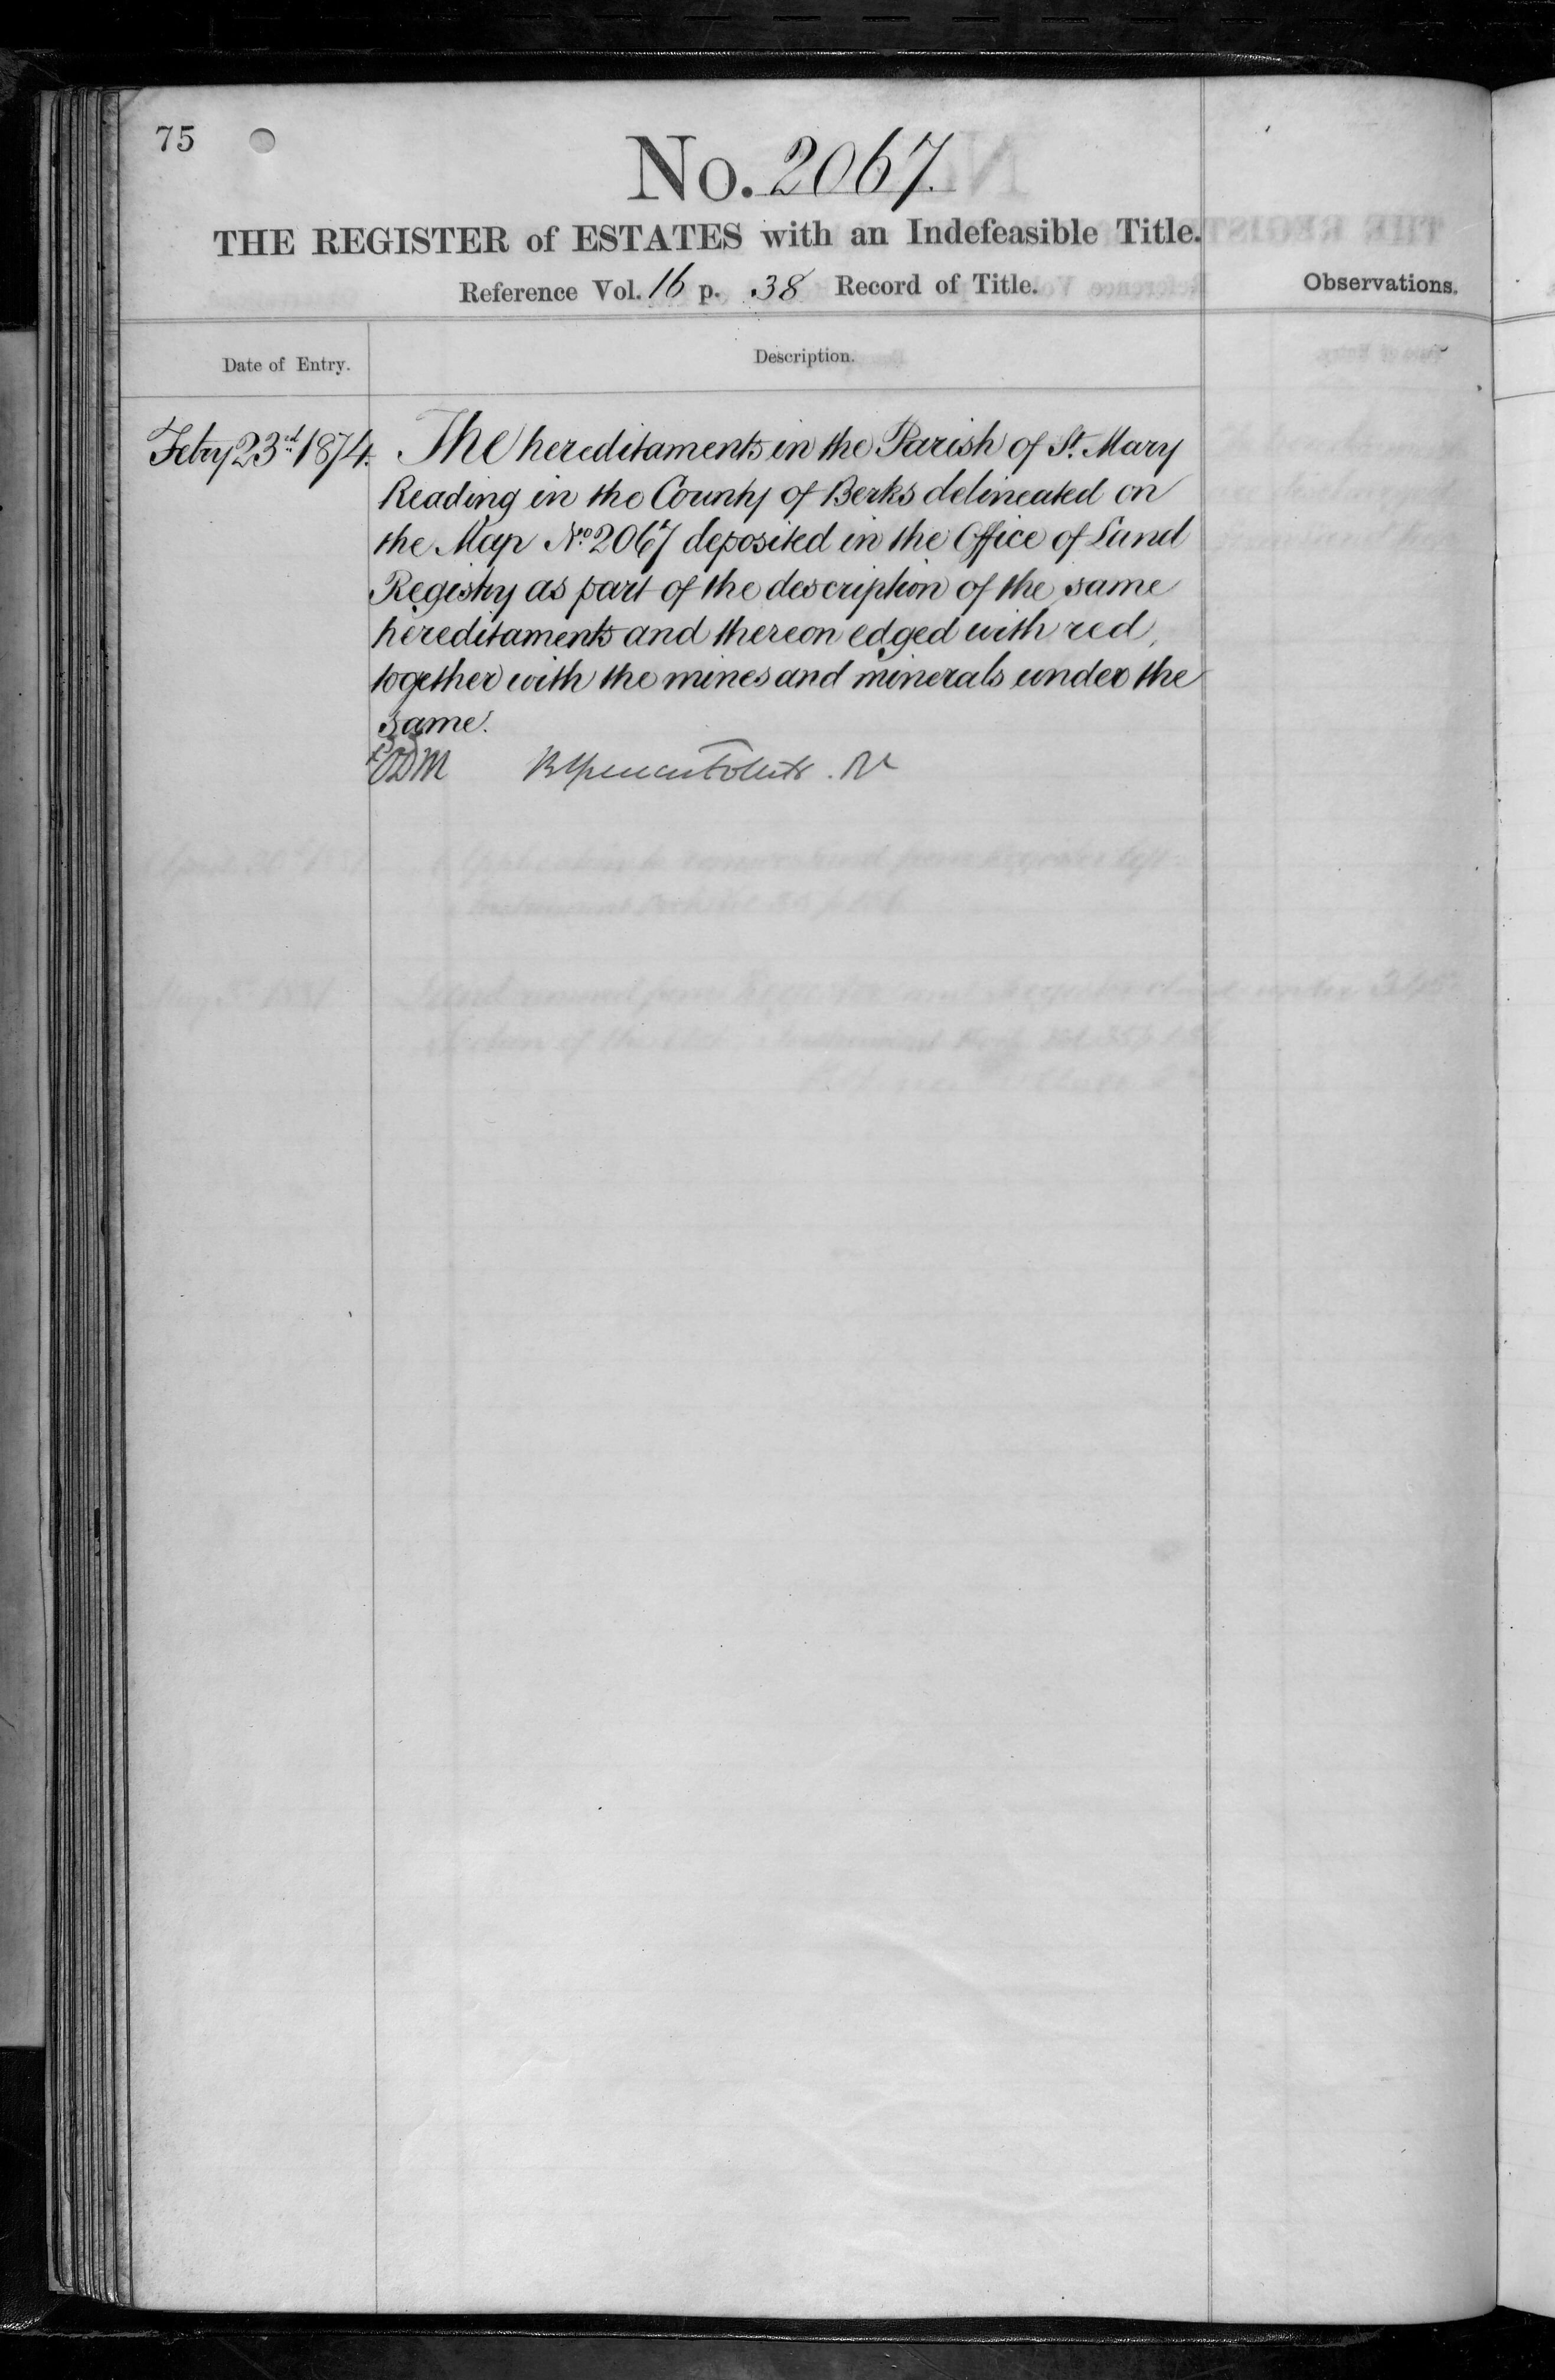 75
No. 2067.
THE REGISTER of ESTATES with an Indefeasible Title.
Reference Vol. 16 p. 38 Record of Title.
Observations.
Date of Entry.
Description.
Febry 23rd 1874. The hereditaments in the Parish of St. Mary
Reading in the County of Berks delineated on
the Map No. 2067 deposited in the Office of Land
Registry as part of the description of the same
hereditaments and thereon edged with red,
together with the mines and minerals under the
same.